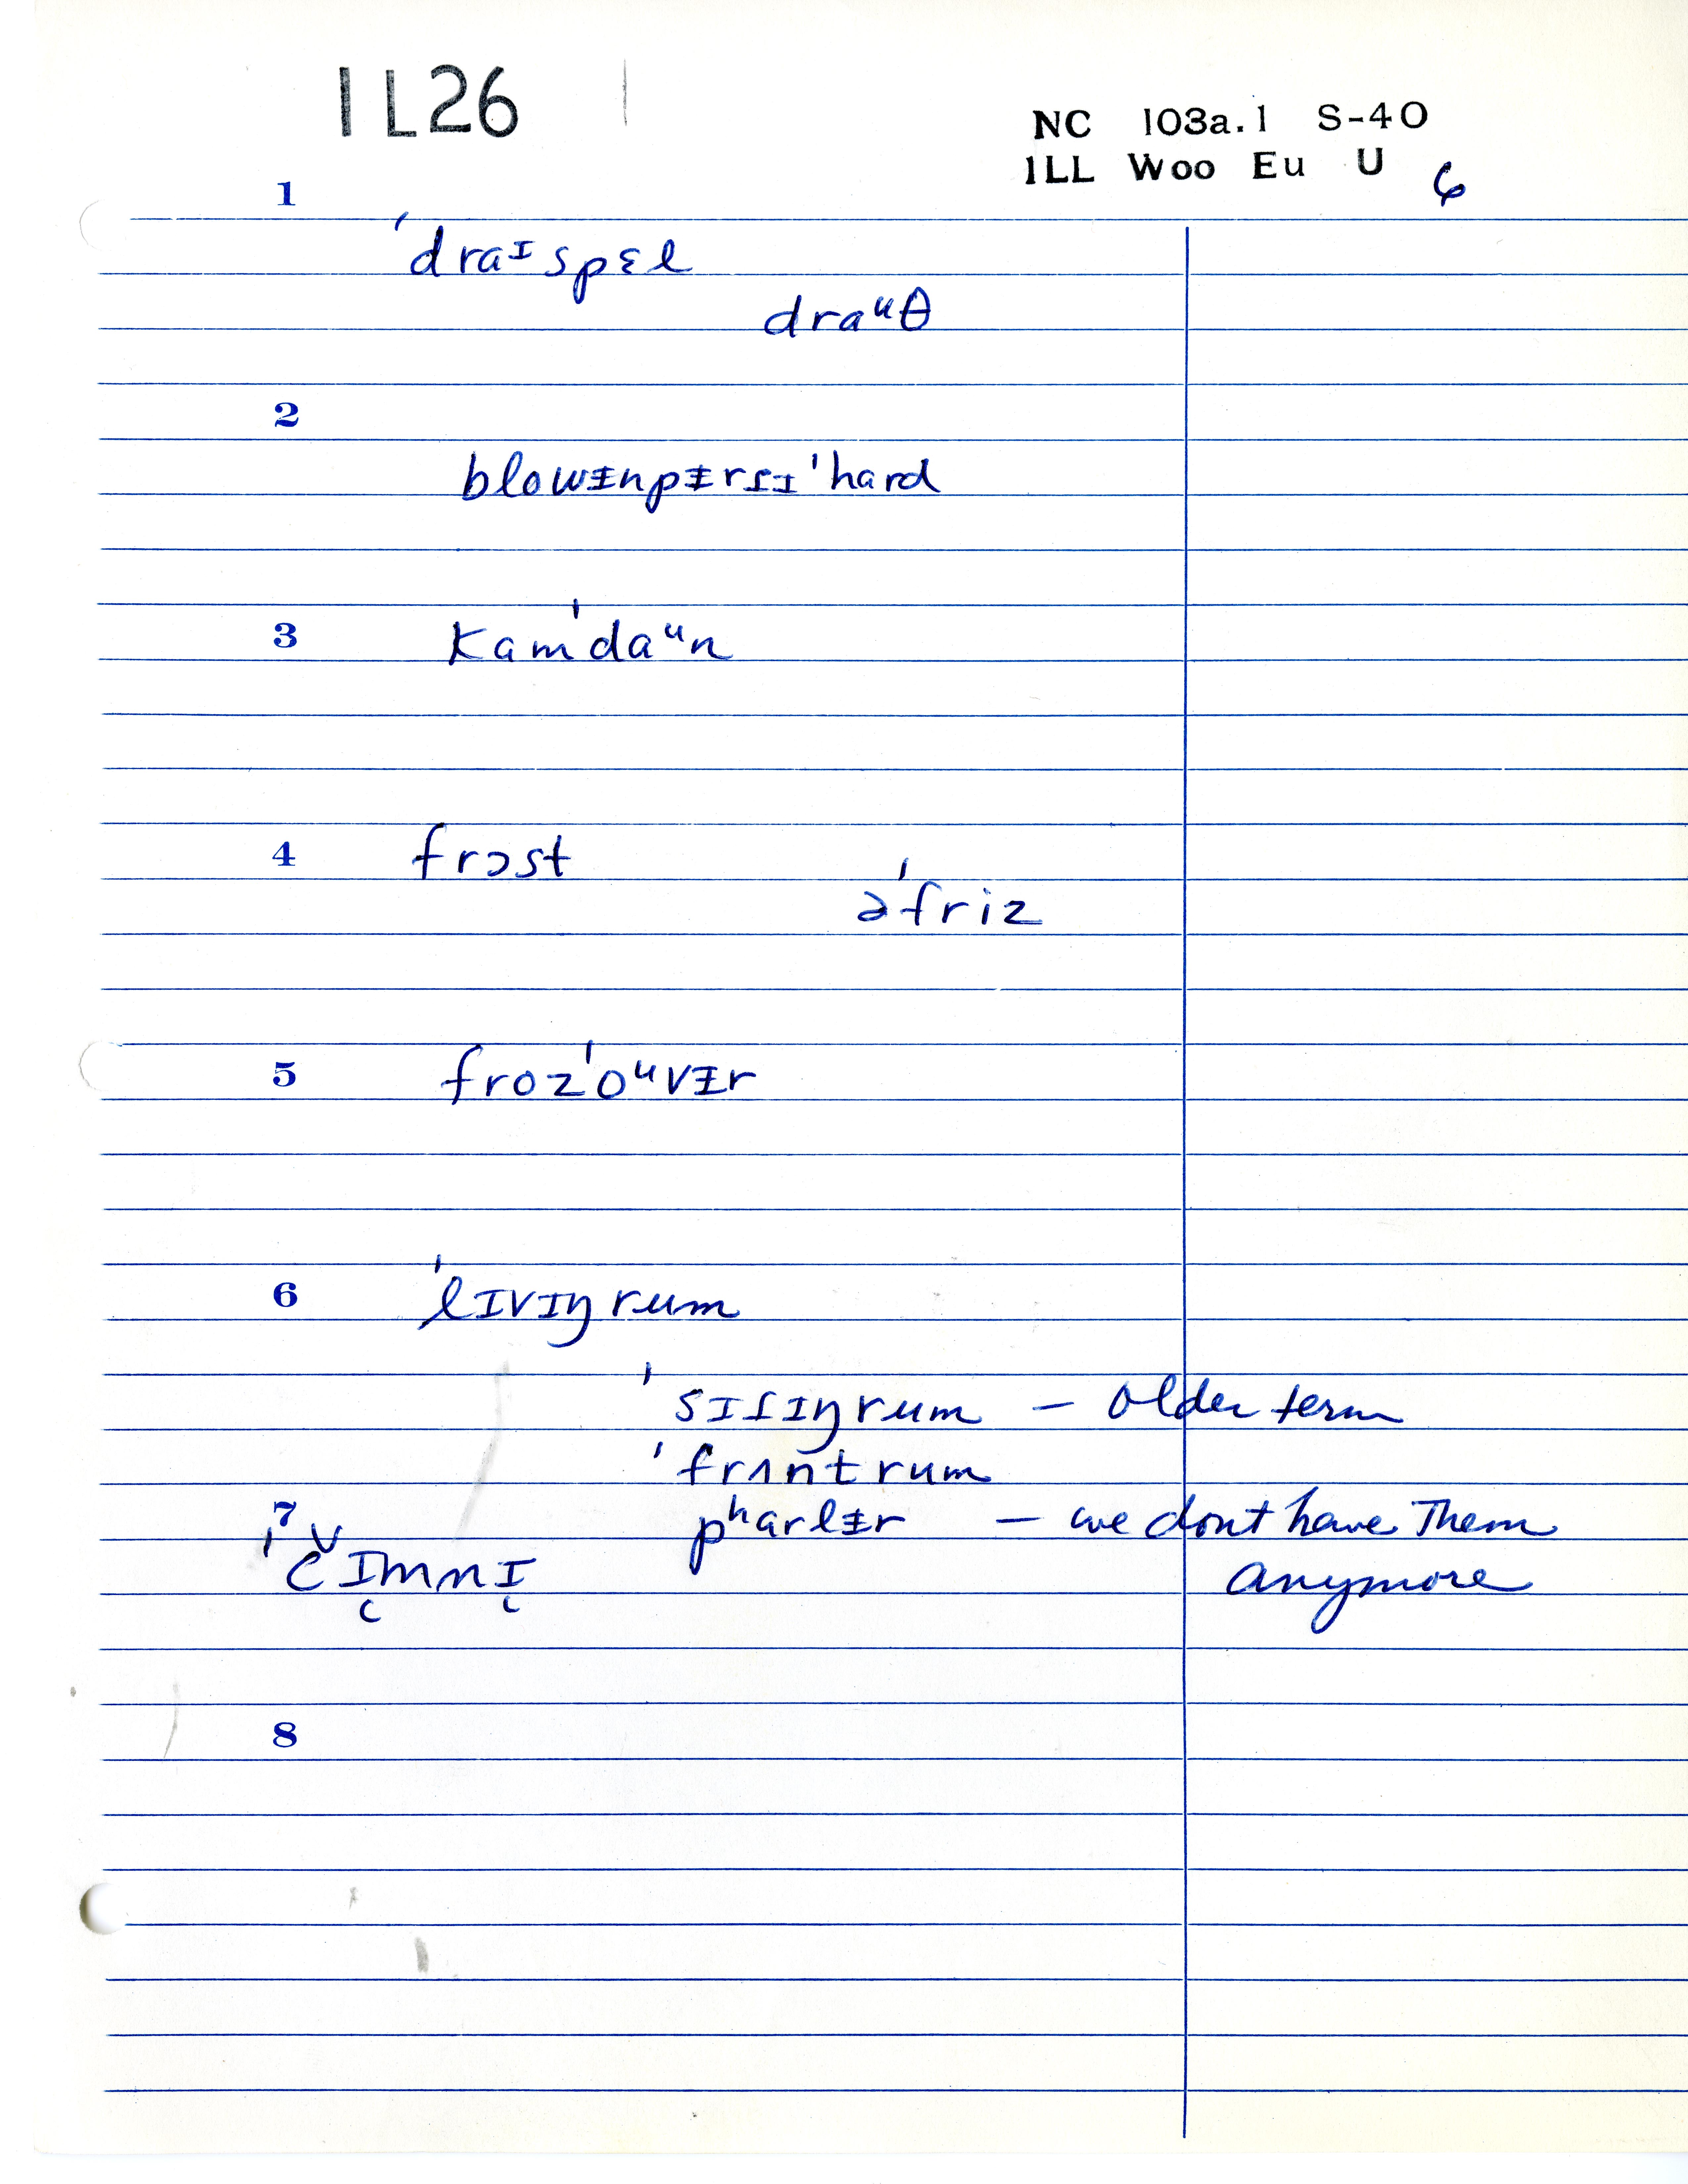 IL26
NC 103a.1 S-40
ILL Woo Eu U 6
1
ˈdraᶦspɛl
draᵘθ
2
blowᵻnpᵻrɾɪ ˈhard
3
kamˈdaᵘn
4
frɔst
əˈfriz
5
frozˈoᵘvᵻr
6
ˈlɪvɪŋrum
ˈsɪɾɪŋrum – older term
ˈfrʌntrum
pʰarlᵻr – we dont have Them
7
ˈčɪ̜mnɪ̜ anymore
8